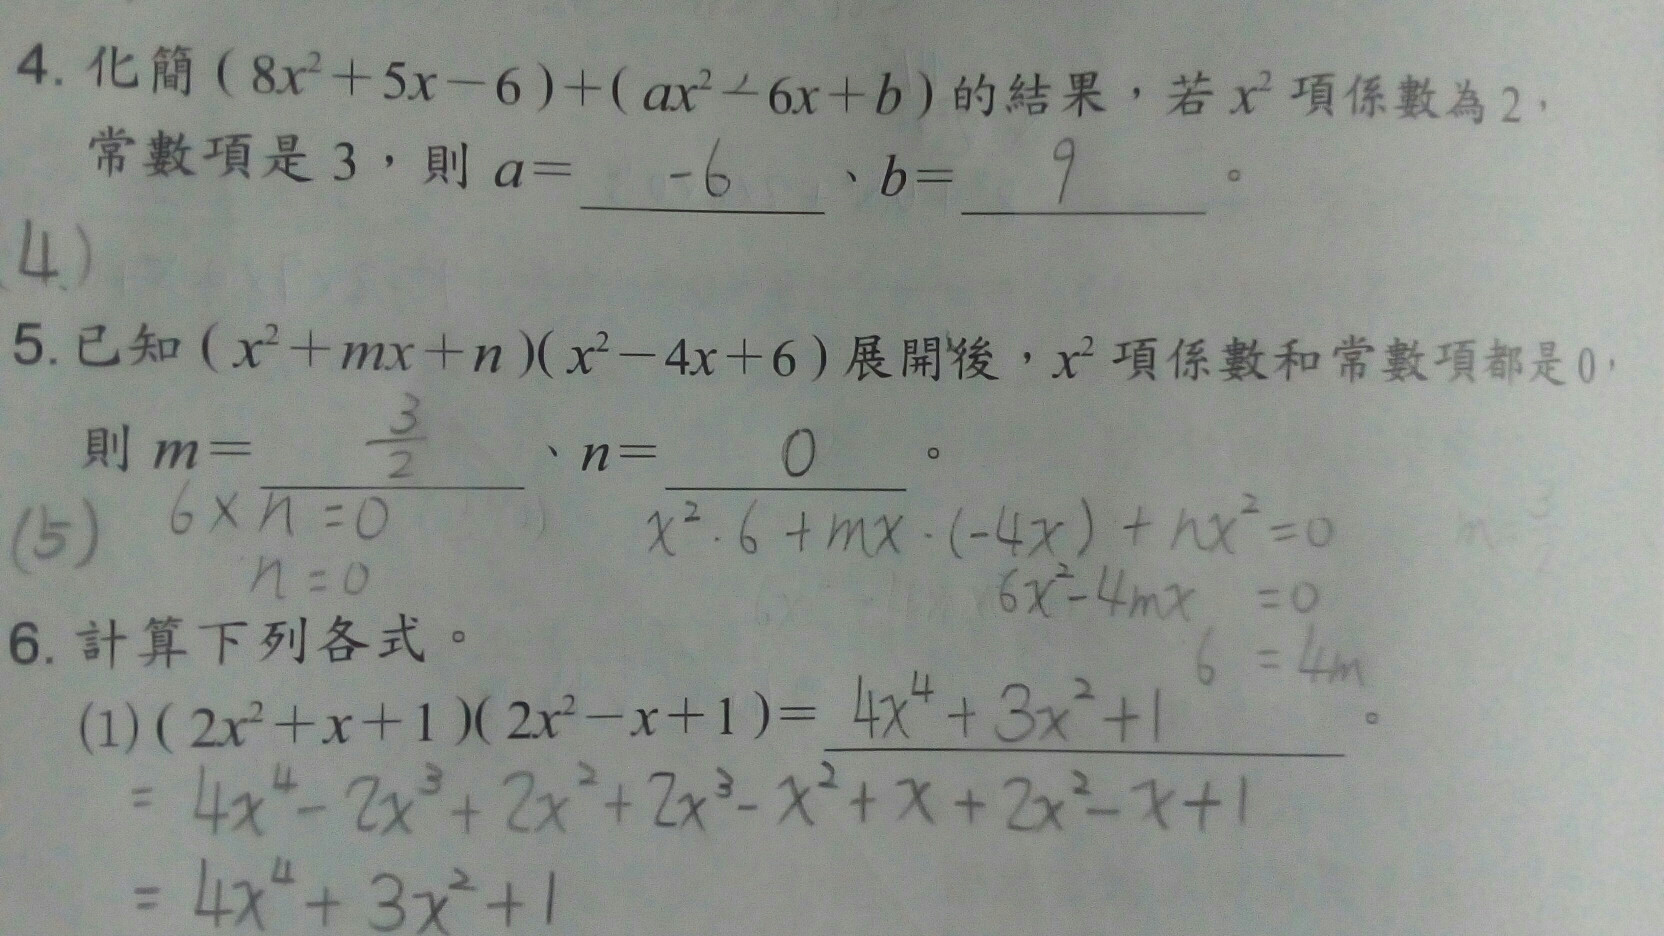 4. 化簡(8x²+5x−6)+(ax²−6x+b)的結果，若 x² 項係數為2，
常數項是 3，則 a= -6 、b= 9 。
(4)
5. 已知(x²+mx+n)(x²−4x+6)展開後，x² 項係數和常數項都是0，
則 m= 3/2 、n= 0 。
(5) 6×n=0 x²·6+mx·(-4x)+nx²=0
n=0 6x²-4mx =0
6 =4m
6. 計算下列各式。
(1)(2x²+x+1)(2x²−x+1)= 4x⁴+3x²+1 。
= 4x⁴-2x³+2x²+2x³-x²+x+2x²-x+1
= 4x⁴+3x²+1